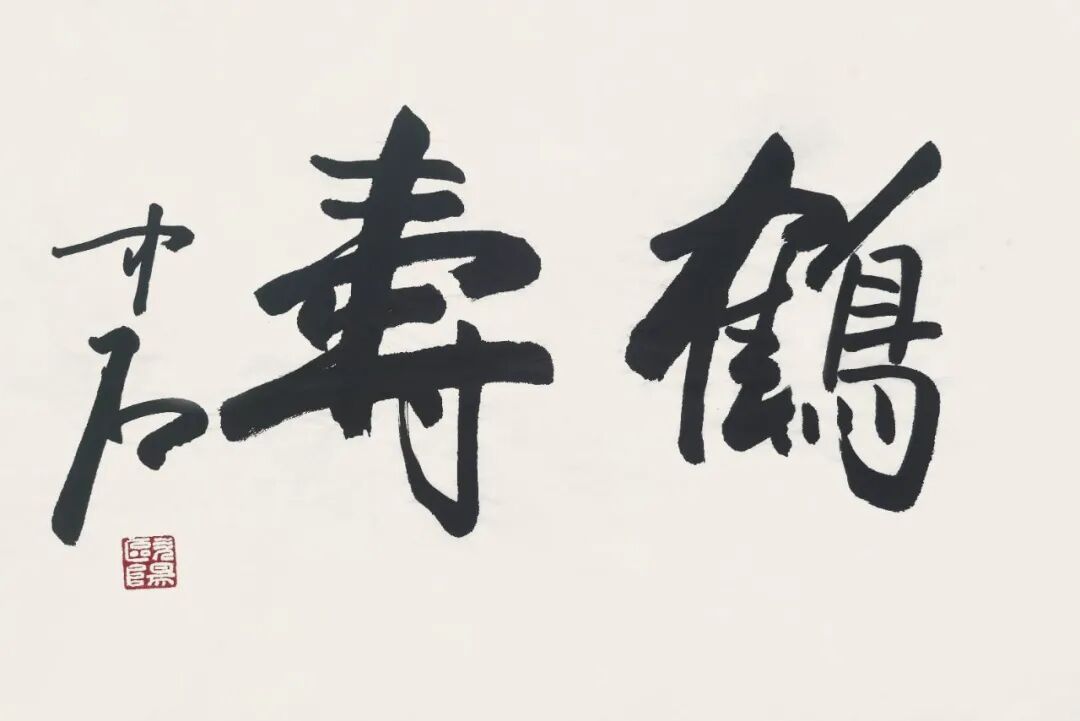 鶴壽
中石